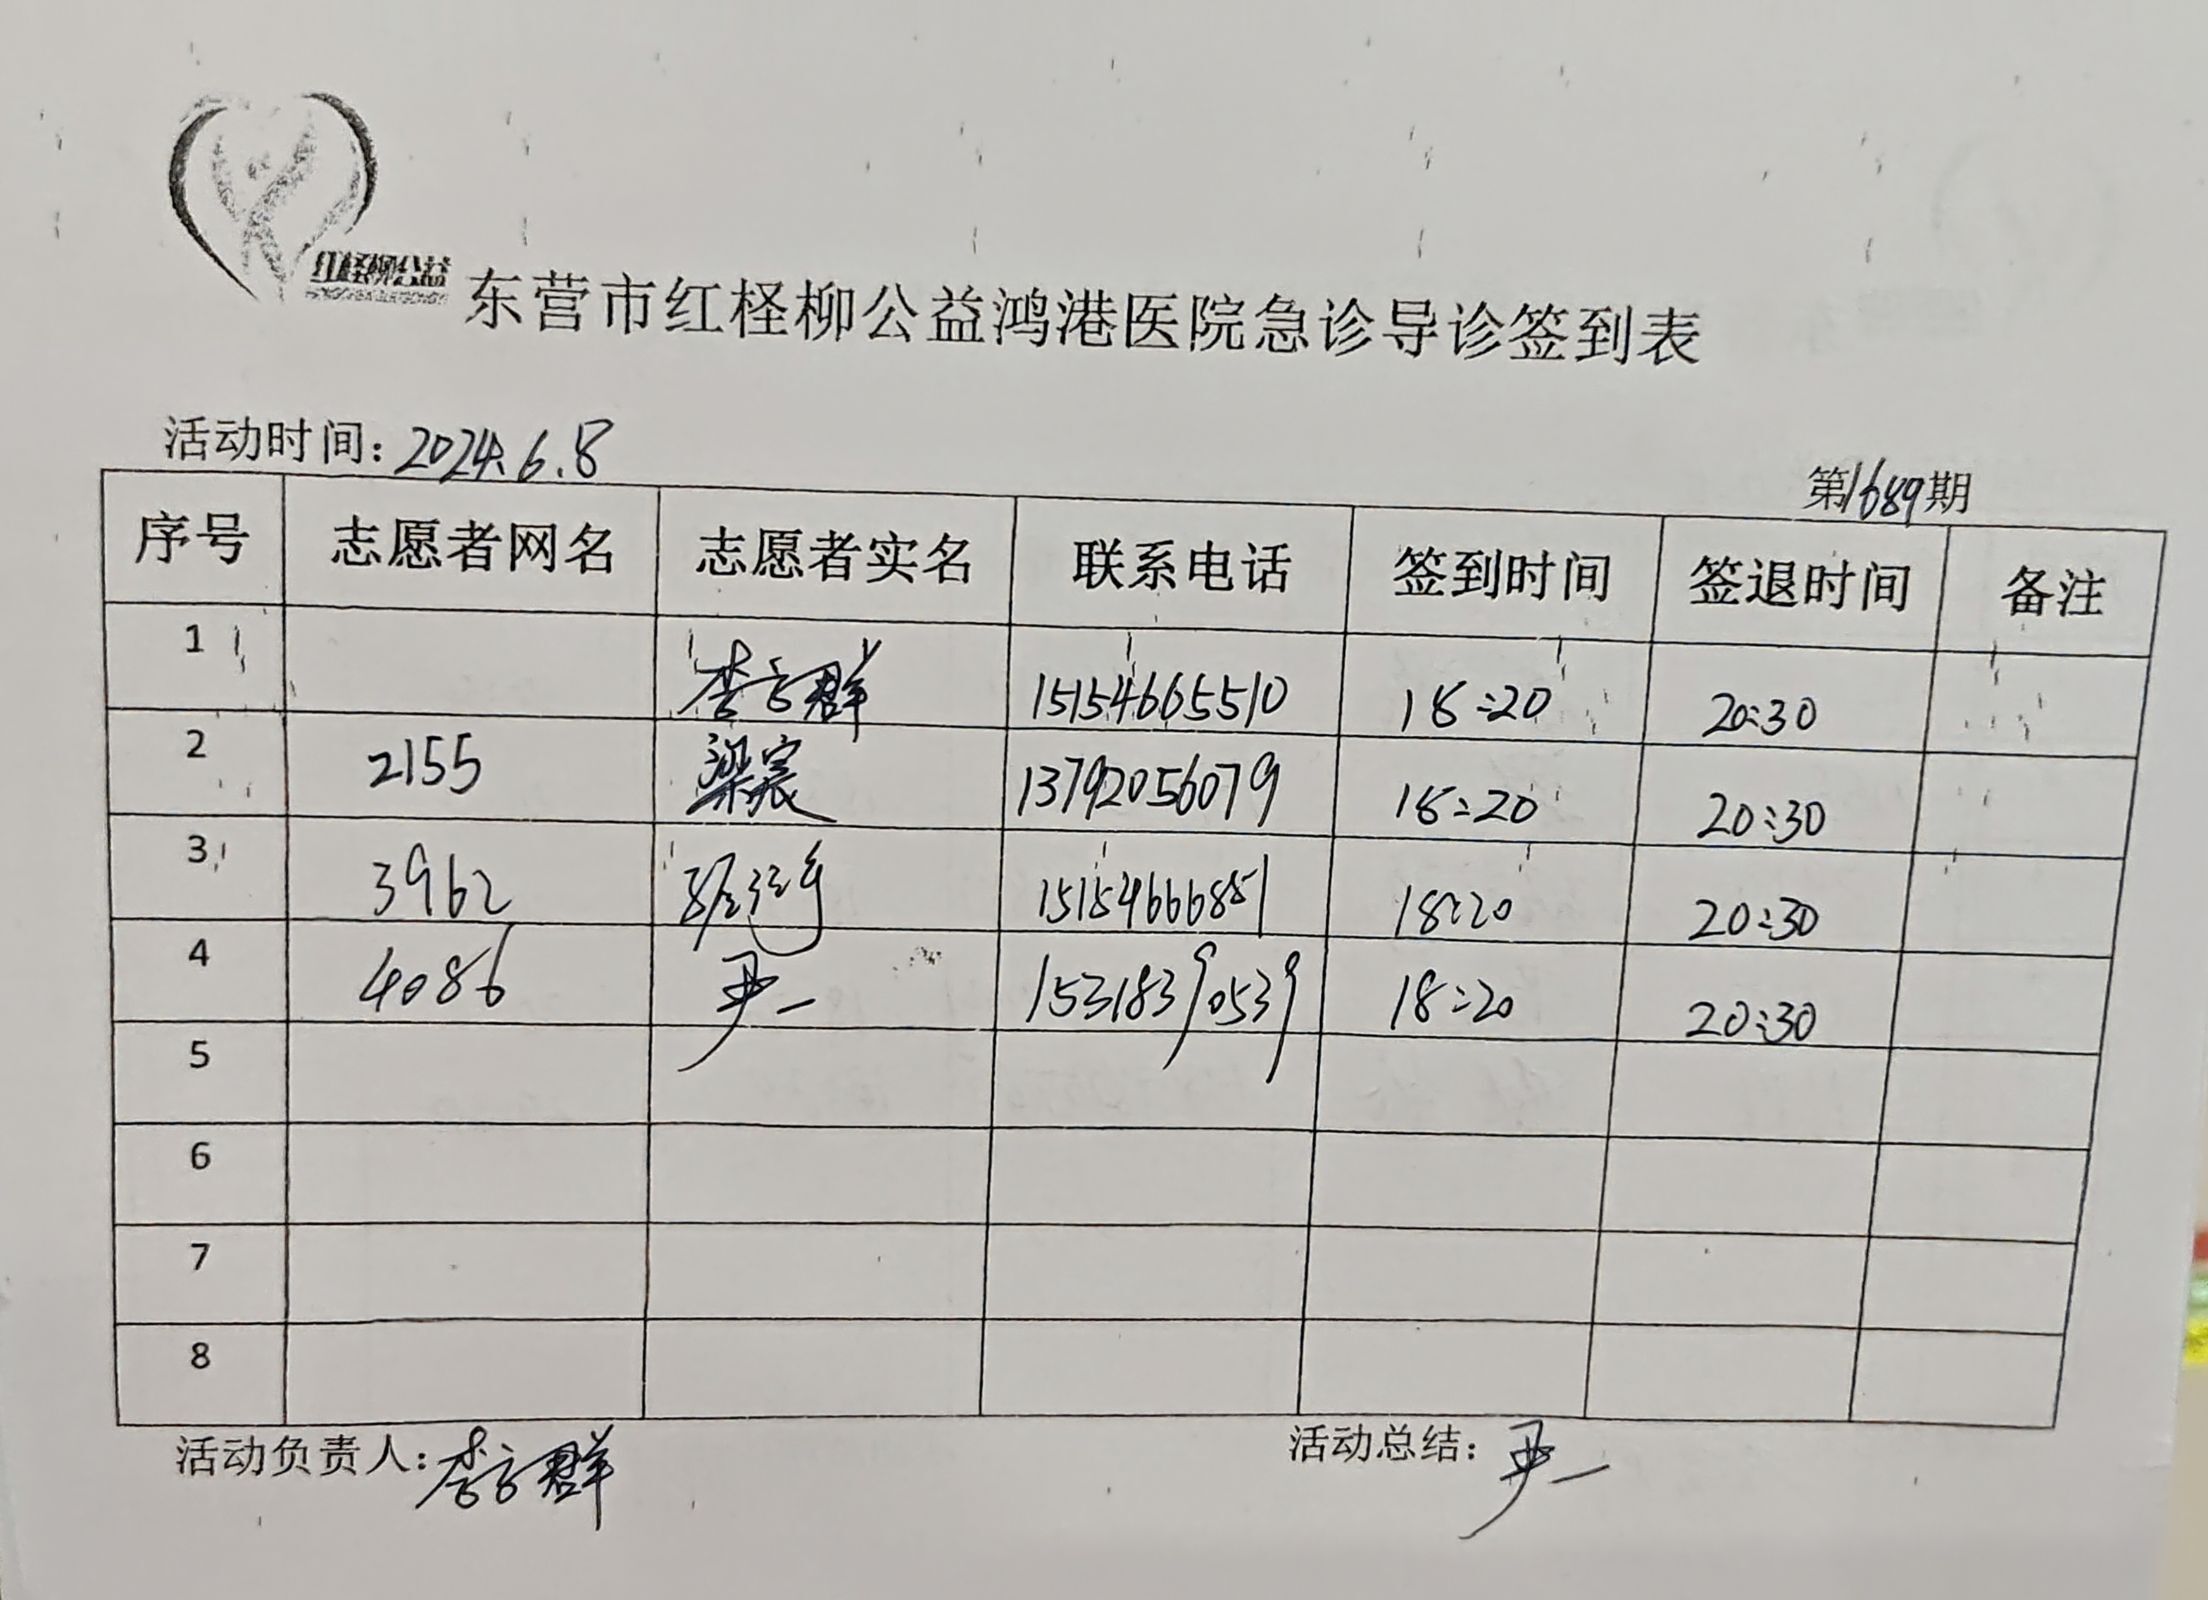 红柽柳公益
东营市红柽柳公益鸿港医院急诊导诊签到表
活动时间: 2024.6.8
第1689期
序号 志愿者网名 志愿者实名 联系电话 签到时间 签退时间 备注
1 李方群 15154665510 18:20 20:30
2 2155 梁宸 13792056079 18:20 20:30
3 3962 15154666851 18:20 20:30
4 4086 尹一 15318390539 18:20 20:30
5
6
7
8
活动负责人: 李方群 活动总结: 尹一